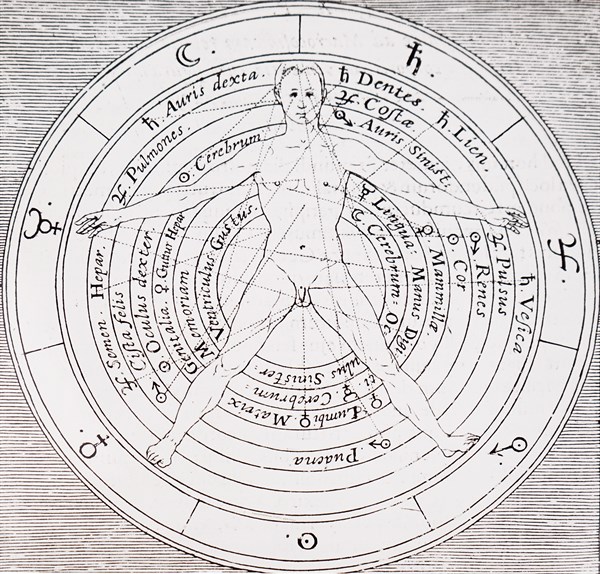 ☾
♄
♄ Auris dextra.
♃ Pulmones.
☉ Cerebrum
♄ Dentes.
♃ Costæ
♂ Auris Sinist.
♄ Lien.
☿ Lingua: Manus Digi
☾ Cerebrum. Oc
♀ Mammilla
☉ Cor
♂ Renes
♃ Pulsus
♄ Vesica
♃
☿
♃ Semen. Hepar.
Cista fellis
♂ ☉ Oculus dexter
Genitalia. ♀ Guttur Hepar
Memoriam
Ventriculus Gustus.
ulus Sinister
ci ☿ Cerebrum:
♀ Lumbi ♀ Matrix
♂ Pudena
♀
☉
♂